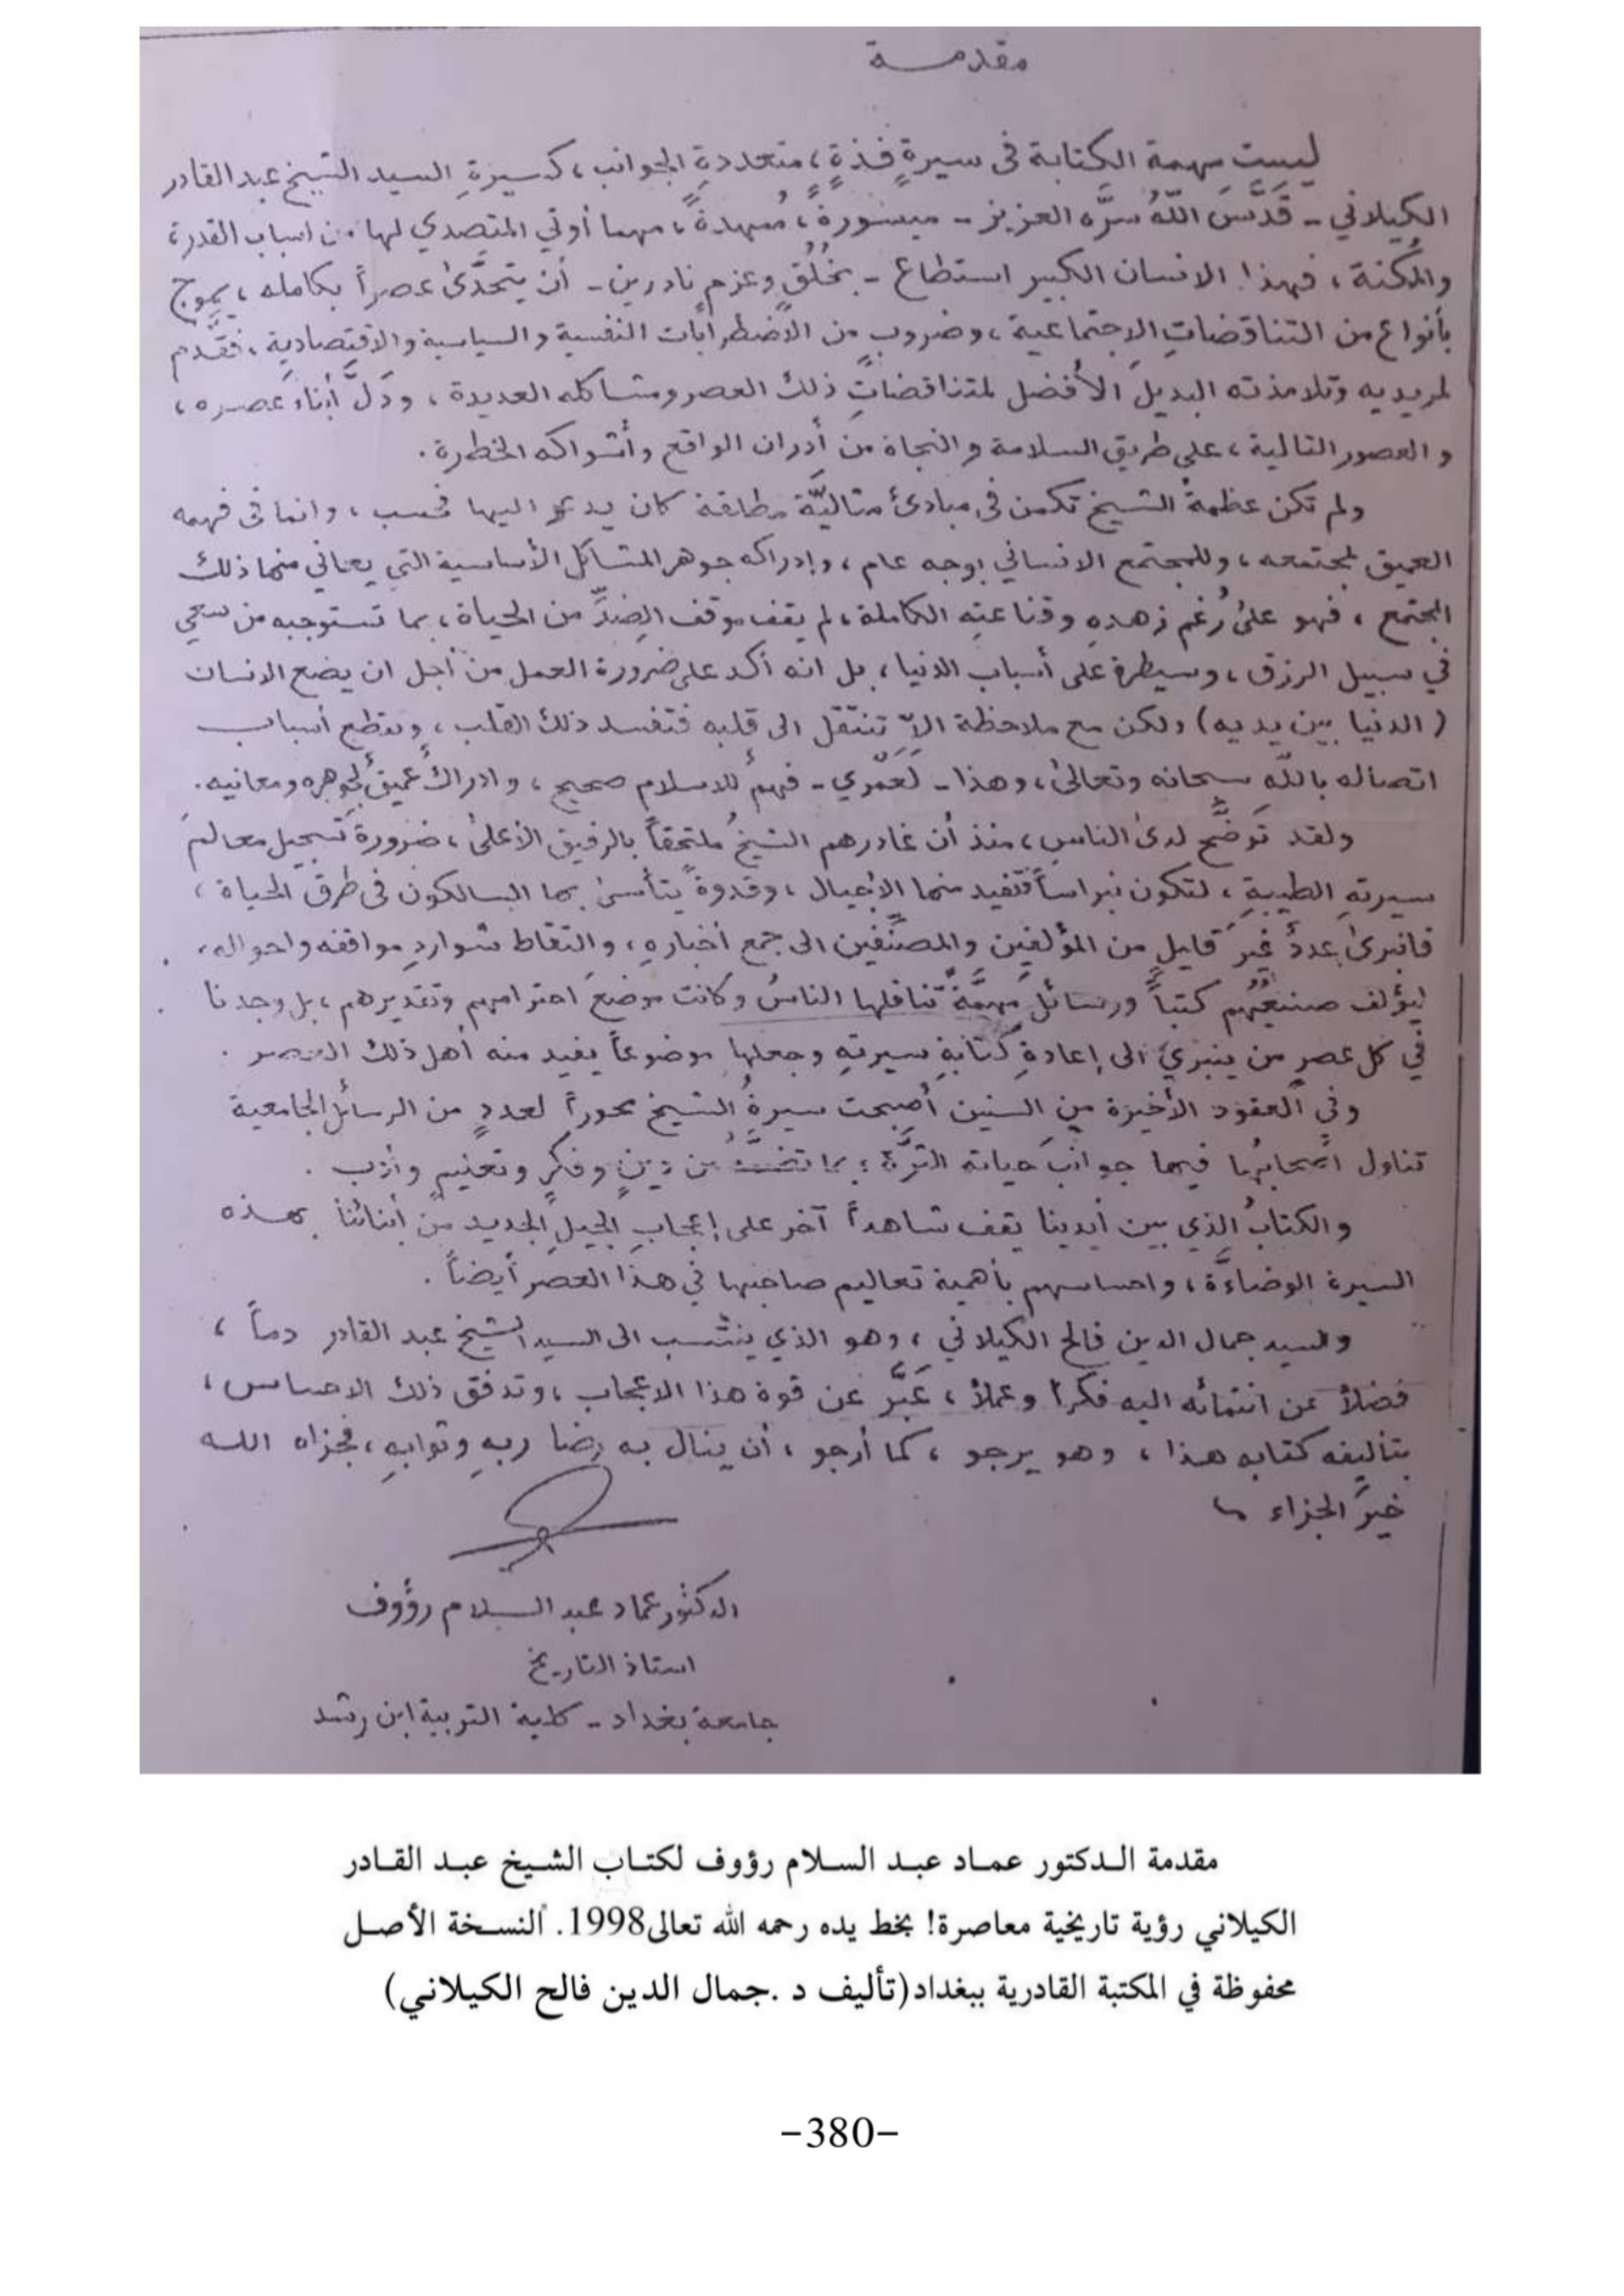 مقدمة
ليست مهمة الكتابة في سيرةٍ فذةٍ، متعددةِ الجوانب، كسيرةِ السيد الشيخ عبد القادر
الكيلاني - قَدَّسَ اللّهُ سرَّه العزيز - ميسورةً، مُمهدةً، مهما أوتي المتصدي لها من اسباب القدرة
والمُكنة، فهذا الانسان الكبير استطاع - بخُلُقٍ وعزمٍ نادرين - أن يتحدَّى عصراً بكامله، يموج
بأنواع من التناقضاتِ الاجتماعية، وضروبٍ من الاضطرابات النفسية والسياسية والاقتصادية، فقدَّم
لمريديه وتلامذته البديلَ الأفضل لمتناقضاتِ ذلك العصر ومشاكله العديدة، ودَلَّ أبناءَ عصره،
والعصور التالية، على طريق السلامة والنجاة من أدران الواقع وأشواكه الخطرة.
ولم تكن عظمةُ الشيخ تكمن في مبادئ مثاليَّة مطلقة كان يدعو اليها فحسب، وانما في فهمه
العميق لمجتمعه، وللمجتمع الانساني بوجه عام، وإدراكه جوهر المشاكل الأساسية التي يعاني منها ذلك
المجتمع، فهو على رُغم زهدهِ وقناعته الكاملة، لم يقف موقف الضِدِّ من الحياة، بما تستوجبه من سعي
في سبيل الرزق، وسيطرة على أسباب الدنيا، بل انه أكد على ضرورة العمل من أجل ان يضع الانسان
(الدنيا بين يديه) ولكن مع ملاحظة الاّ تنتقل الى قلبه فتفسد ذلك القلب، وتقطع أسباب
اتصاله باللّه سبحانه وتعالى، وهذا - لَعَمْري - فهمٌ للاسلام صحيح، وادراكٌ عميقٌ لجوهره ومعانيه.
ولقد تَوَضَّح لدى الناسِ، منذ أن غادرهم الشيخُ ملتحقاً بالرفيق الأعلى، ضرورةَ تسجيل معالمَ
سيرتهِ الطيبةِ، لتكون نبراساً تفيد منها الأجيال، وقدوةً يتأسى بها السالكون في طرق الحياة،
فانبرى عددٌ غيرَ قليلٍ من المؤلفين والمصنّفين الى جمع أخبارهِ، والتقاط شواردِ مواقفه واحواله،
ليؤلف كتباً ورسائلَ مهمَّةً تناقلها الناسُ وكانت موضعَ احترامهم وتقديرهم، بل وجدنا
في كل عصرٍ من ينبري الى إعادةِ كتابةِ سيرتهِ وجعلها موضوعاً يفيد منه أهل ذلك العصر.
وفي العقود الأخيرة من السنين أصبحت سيرةُ الشيخ محوراً لعددٍ من الرسائل الجامعية
تناول أصحابُها فيها جوانبَ حياته الثرَّة؛ بما من دينٍ وفكرٍ وتعليمٍ وأدب.
والكتابُ الذي بين أيدينا يقف شاهداً آخر على إعجابِ الجيلِ الجديد من أبنائنا بهذه
السيرة الوضاءَة، واحساسهم بأهمية تعاليم صاحبها في هذا العصر أيضاً.
والسيد جمال الدين فالح الكيلاني، وهو الذي ينتسب الى السيد الشيخ عبد القادر دماً،
فضلاً عن انتمائه اليه فكراً وعملاً، عَبَّر عن قوة هذا الاعجاب، وتدفق ذلك الاحساس،
بتأليفه كتابه هذا، وهو يرجو، كما أرجو، أن ينال به رضا ربهِ وثوابهِ، فجزاه الله
خيرَ الجزاء
الدكتور عماد عبد السلام رؤوف
استاذ التاريخ
جامعة بغداد - كلية التربية ابن رشد
مقدمة الدكتور عماد عبد السلام رؤوف لكتاب الشيخ عبد القادر
الكيلاني رؤية تاريخية معاصرة! بخط يده رحمه الله تعالى1998. النسخة الأصل
محفوظة في المكتبة القادرية ببغداد(تأليف د .جمال الدين فالح الكيلاني)
-380-